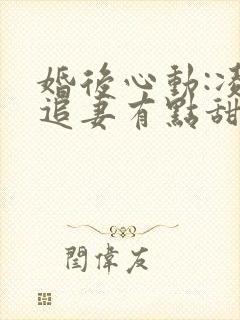 婚後心動:凌
追妻有點甜
閆偉友